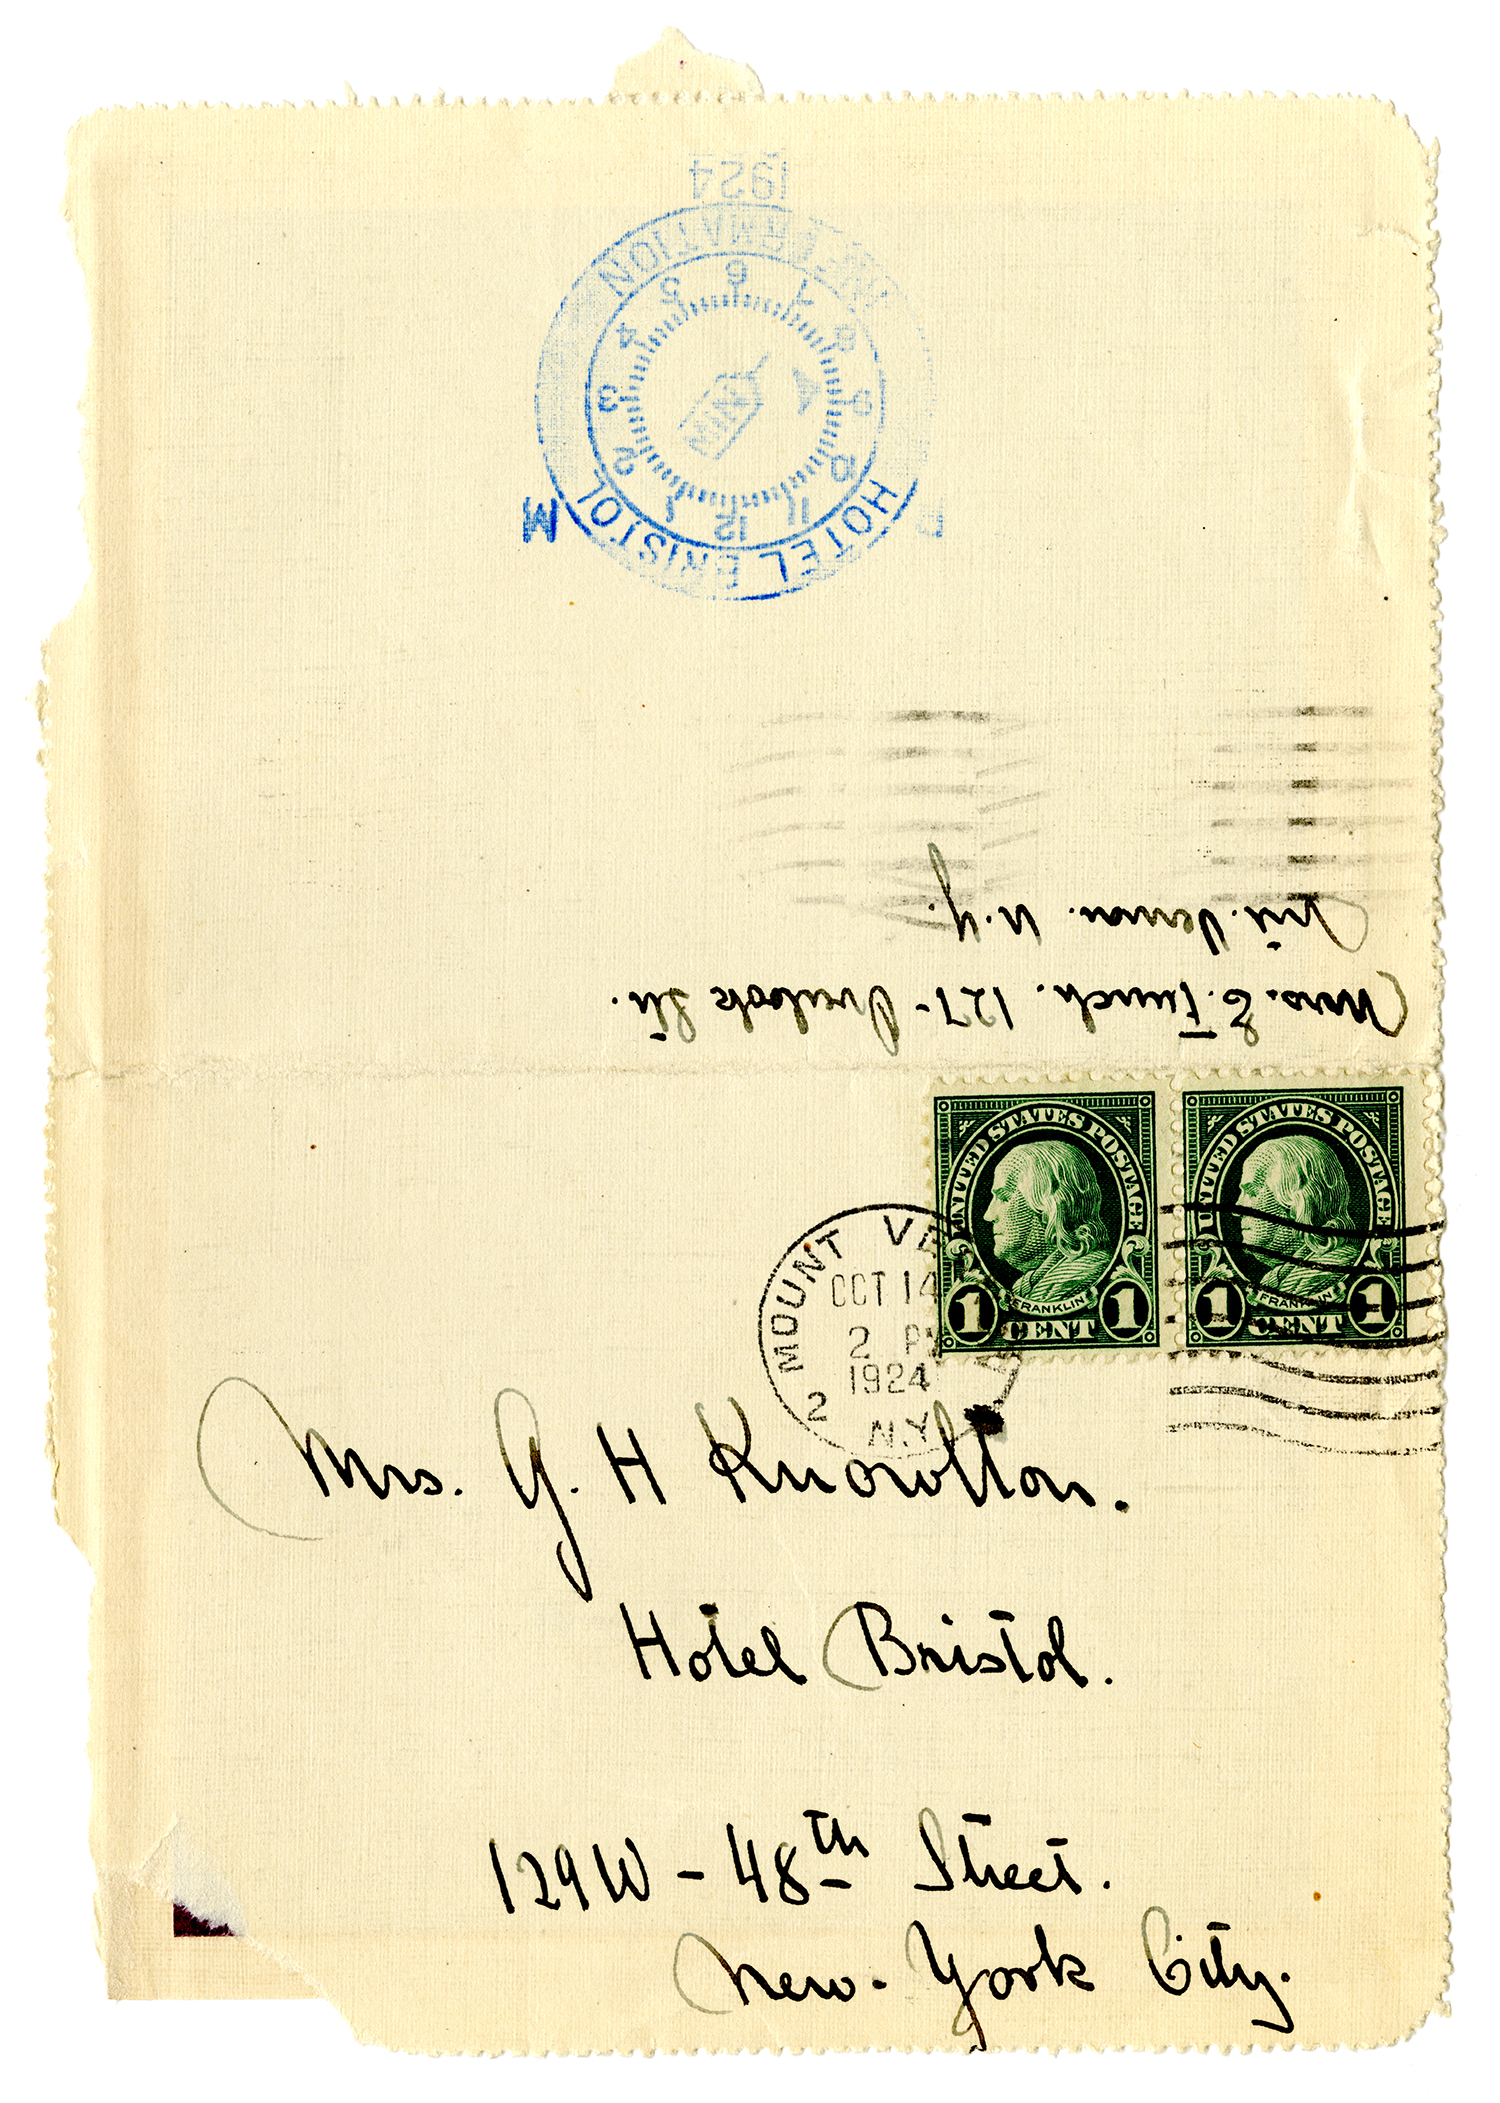 1924
INFORMATION
6
5 7
4 8
3 9
2
1 12 11
HOTEL BRISTOL
M
Mrs. E. Funch. 127- Overlook Str.
Mt. Vernon. N.Y.
UNITED STATES POSTAGE
FRANKLIN
1 CENT 1
UNITED STATES POSTAGE
FRANKLIN
1 CENT 1
MOUNT
OCT 14
2 PM
1924
2
N.Y.
Mrs. G. H Knowlton.
Hotel Bristol.
129W - 48th Street.
New-York City.